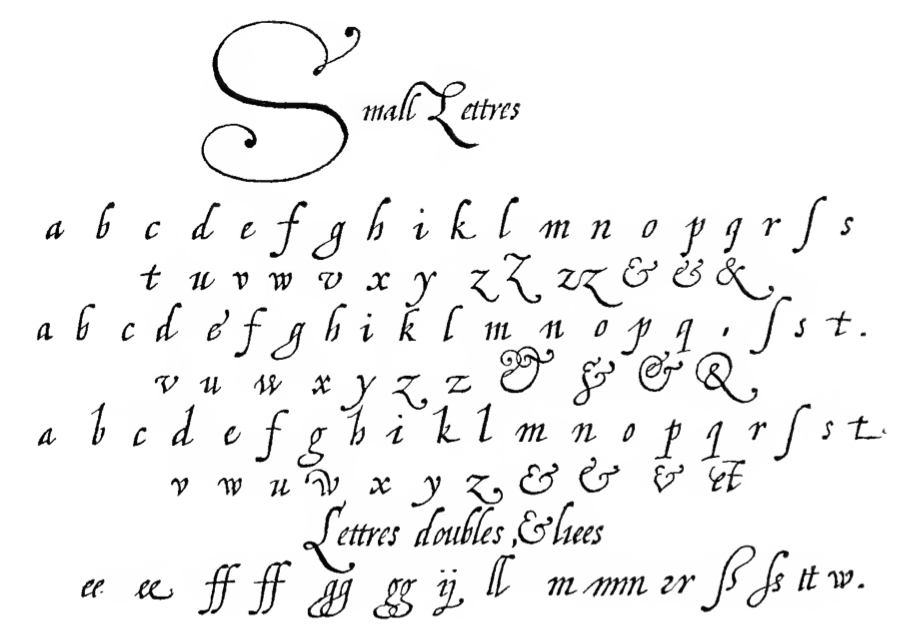 Small Lettres
a b c d e f g h i k l m n o p q r ſ s
t u v w v x y z Z zz & & &
a b c d e f g h i k l m n o p q . ſ s t .
v u w x y z z & & & &
a b c d e f g h i k l m n o p q r ſ s t .
v w u w x y z & & & et
Lettres doubles, & liees
ee ee ff ff gg gg ij ll m mm ꝛr ſs ſs tt w.